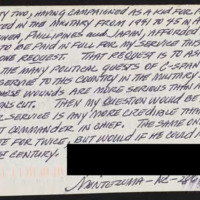 TY TWO, HAVING CAMPAIGNED AS A KID FOR
ED IN THE MILITARY FROM 1941 TO 45 IN A
NEA, PHILLIPINES AND JAPAN, AFFORDED
TO BE PAID IN FULL FOR MY SERVICE THIS
ONE REQUEST. THAT REQUEST IS TO ASK
THE MANY POLITICAL GUESTS OF C-SPAN
SERVICE TO THIS COUNTRY IN THE MILITARY
THOSE WOUNDS ARE MORE SERIOUS THAN
NS CUT. THEN MY QUESTION WOULD BE
R SERVICE IS ANY MORE CREDIBLE THA
T COMMANDER IN CHIEF. THE SAME ON
TE FOR TWICE, BUT WOULD IF HE COULD
E CENTURY.
MONTEZUMA - N.C - 286